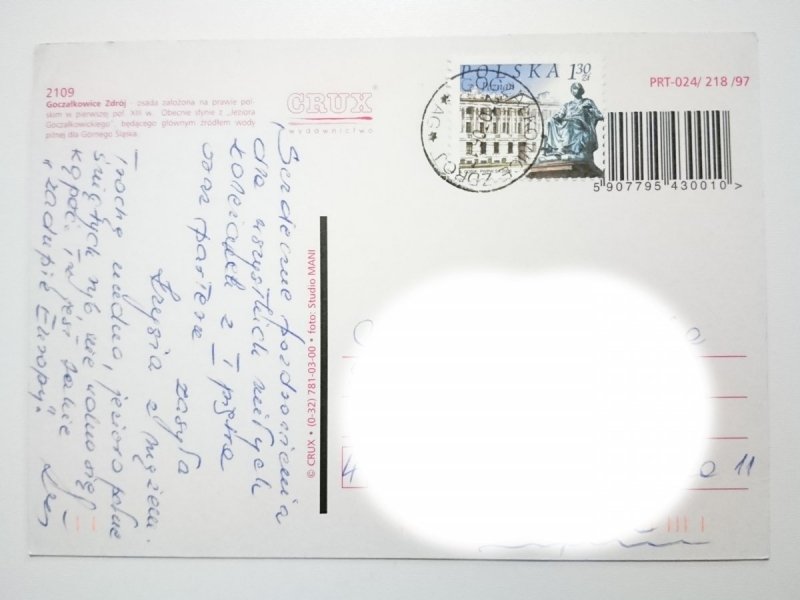 2109
Goczałkowice Zdrój - osada założona na prawie pol-
skim w pierwszej poł. XIII w. Obecnie słynie z „Jeziora
Goczałkowickiego", będącego głównym źródłem wody
pitnej dla Górnego Śląska.
CRUX
wydawnictwo
POLSKA 130 zł
Poznań
PRT-024/ 218 /97
5 907795 430010 >
© CRUX • (0-32) 781-03-00 • foto: Studio MANI
„Serdeczne pozdrowienia
dla wszystkich miłych
koleżanek z I piętra
oraz parteru
zasyła
Krysia z mężem.
Trochę nudno, jezioro pełne
śniętych ryb, nie wolno się
kąpać i w
"zadupie Europy".
4
11